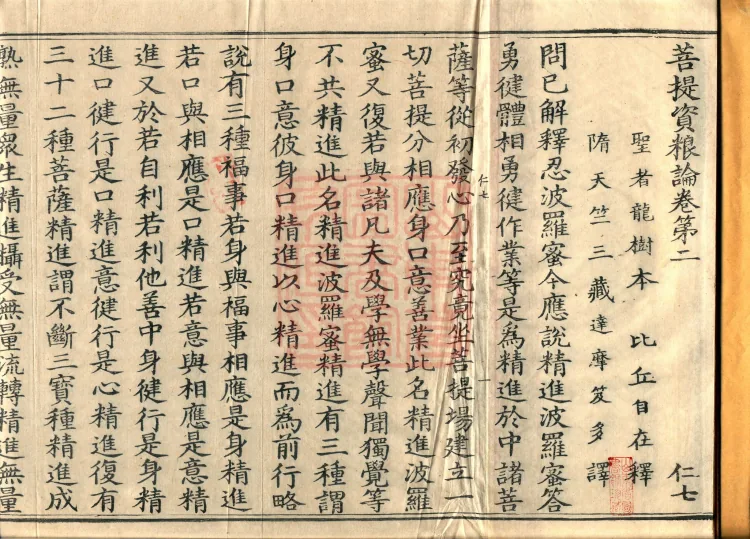 菩提資粮論卷第二 仁七
聖者龍樹本 比丘自在釋
隋天竺三藏達摩笈多譯
問已解釋忍波羅蜜今應說精進波羅蜜答
勇健體相勇健作業等是為精進於中諸菩
薩等從初發心乃至究竟坐菩提場建立一
仁七 一
切菩提分相應身口意善業此名精進波羅
蜜又復若與諸凡夫及學無學聲聞獨覺等
不共精進此名精進波羅蜜精進有三種謂
身口意彼身口精進以心精進而為前行略
說有三種福事若身與福事相應是身精進
若口與相應是口精進若意與相應是意精
進又於若自利若利他善中身健行是身精
進口健行是口精進意健行是心精進復有
三十二種菩薩精進謂不斷三寶種精進成
熟無量眾生精進攝受無量流轉精進無量